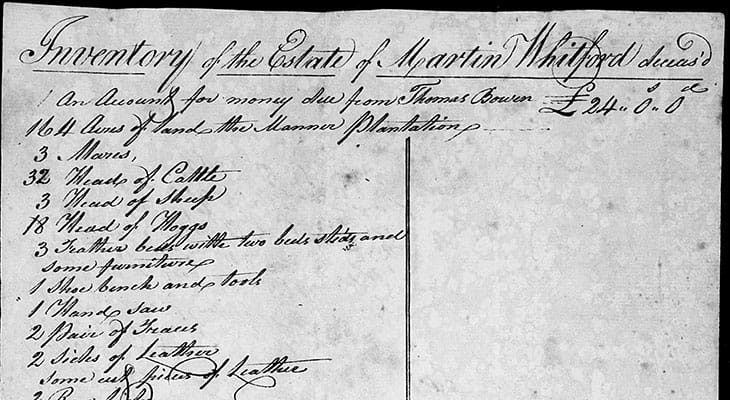 Inventory of the Estate of Martin Whitford deceas'd
1 An Account for money due from Thomas Bowen £ 24 " 0s " 0d
164 Acres of land the Manner Plantation
3 Mares,
32 Head of Cattle
3 Head of Sheep
18 Head of Hoggs
3 Feather beds withe two beds steds and
some furniture
1 Shoe bench and tools
1 Hand saw
2 Pair of Traces
2 Sides of Leather
some cut pieces of Leather
2